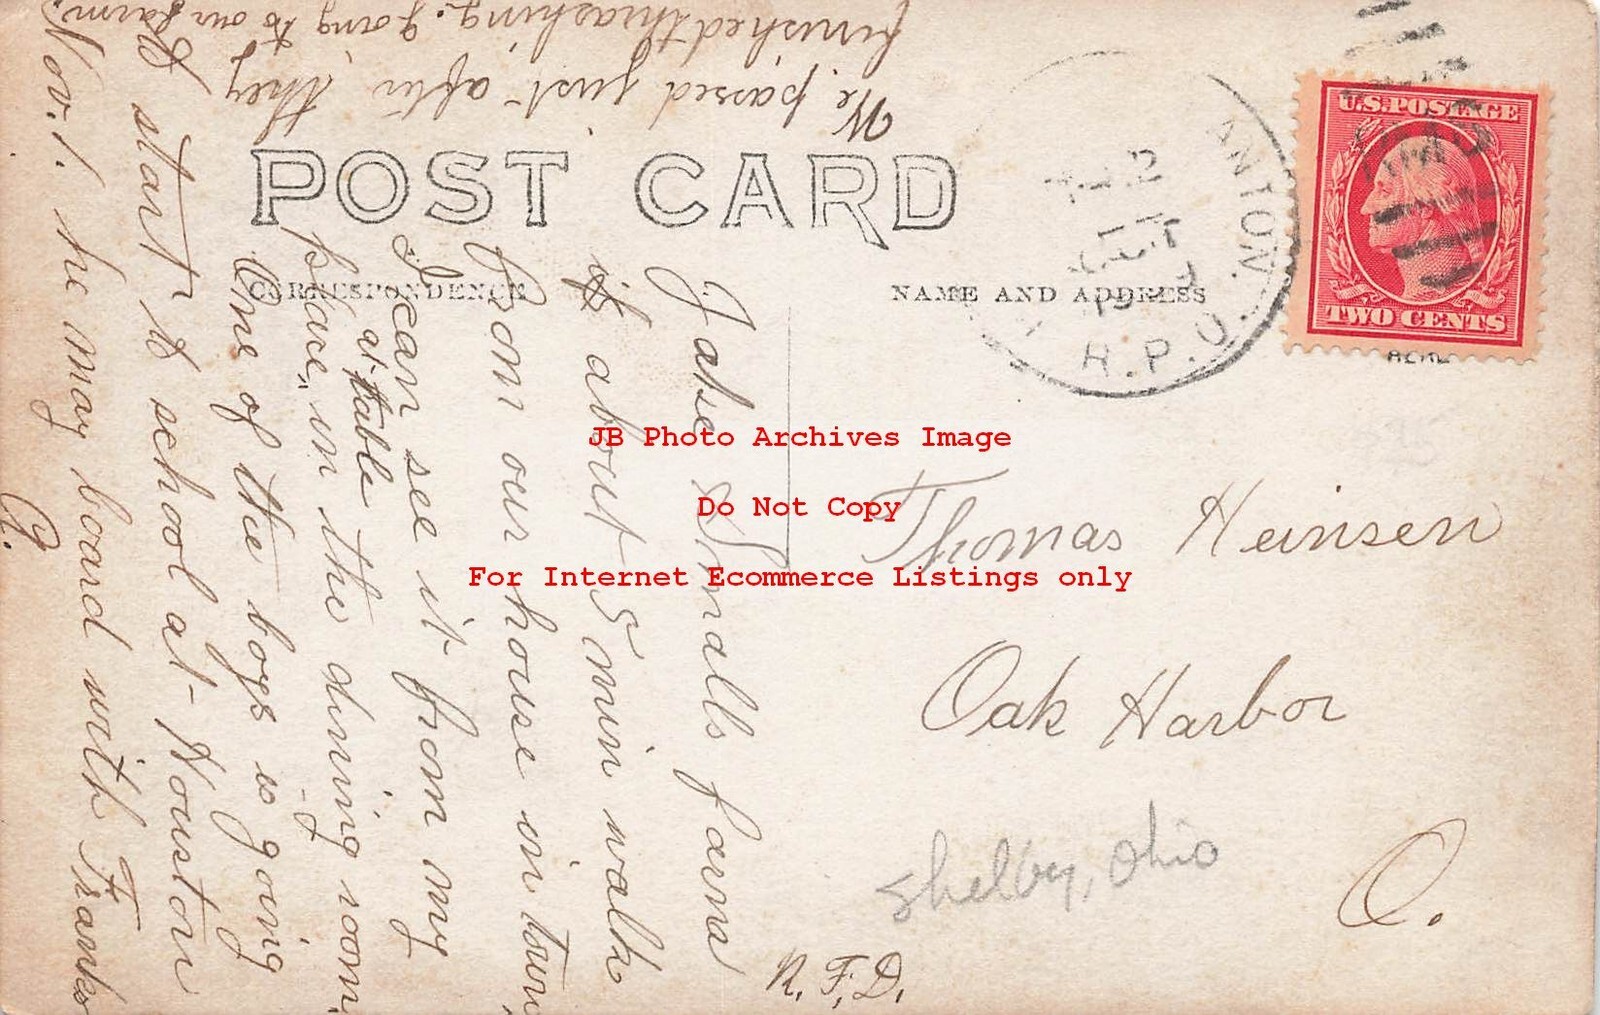 We passed just after they
finished thrashing. Going to our farm.
POST CARD
CORRESPONDENCE
NAME AND ADDRESS
U.S. POSTAGE
TWO CENTS
ANTON.
OCT
R.P.O.
Jake Smalls farm
is about 5 min walk
from our house in town,
I can see it from my
place, in the dining room
at table
One of the boys is going
to start to school at Houston
Nov. 1. he may board with Franks
A.
Thomas Heinsen
Oak Harbor
O.
R.F.D.
Shelby, Ohio
JB Photo Archives Image
Do Not Copy
For Internet Ecommerce Listings only